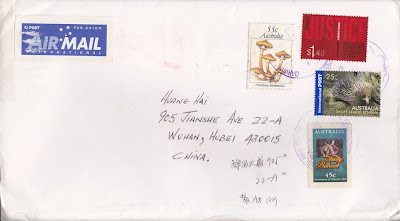 POST PAR AVION
AIR MAIL
INTERNATIONAL
55c
Australia
JUSTICE
$1.45
International POST
25c
AUSTRALIA
AUSTRALIA
45c
HUANG HAI
905 JIANSHE AVE 22-A
WUHAN, HUBEI 430015
CHINA.
905#
22-A#